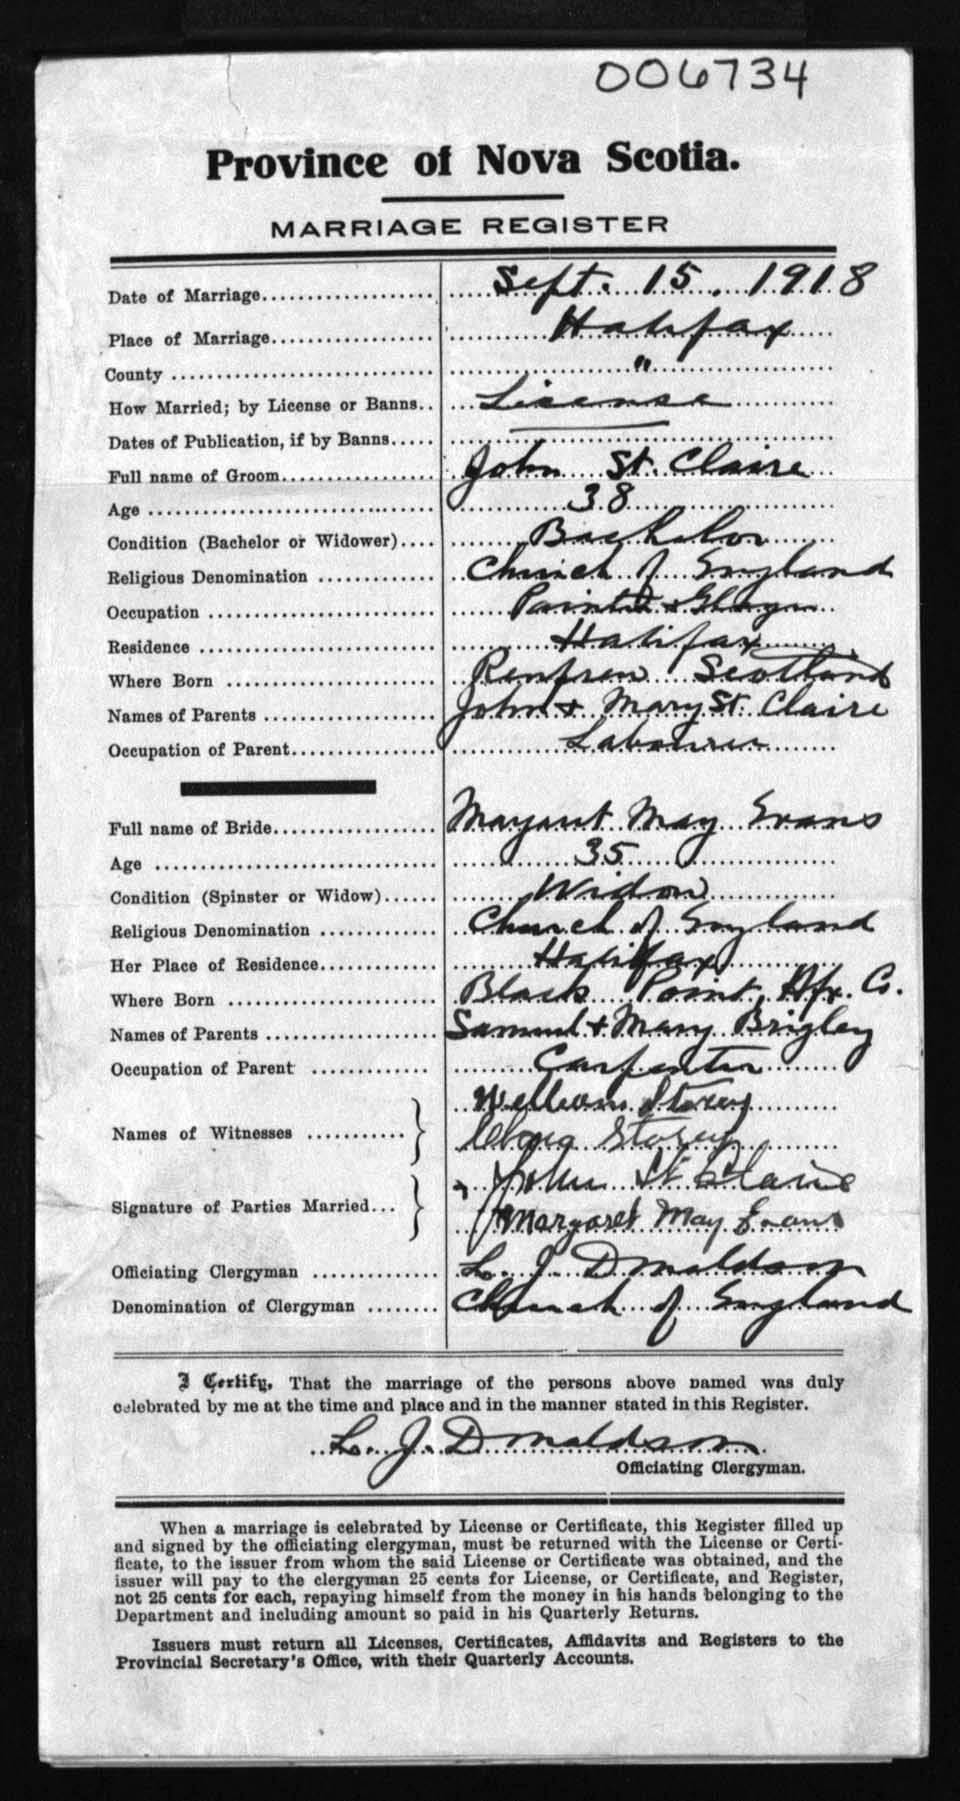 006734
Province of Nova Scotia.
MARRIAGE REGISTER
Date of Marriage Sept. 15. 1918
Place of Marriage Halifax
County "
How Married; by License or Banns License
Dates of Publication, if by Banns
Full name of Groom John St. Claire
Age 38
Condition (Bachelor or Widower) Bachelor
Religious Denomination Church of England
Occupation Painter & Glazier
Residence Halifax
Where Born Renfrew Scotland
Names of Parents John & Mary St. Claire
Occupation of Parent Labourer
Full name of Bride Margaret May Evans
Age 35
Condition (Spinster or Widow) Widow
Religious Denomination Church of England
Her Place of Residence Halifax
Where Born Black Point, Hfx. Co.
Names of Parents Samuel & Mary Brigley
Occupation of Parent Carpenter
William Storey
Names of Witnesses Storey
John St Claire
Signature of Parties Married
Margaret May Evans
Officiating Clergyman L. J. Donaldson
Denomination of Clergyman Church of England
I Certify, That the marriage of the persons above named was duly
celebrated by me at the time and place and in the manner stated in this Register.
L. J. Donaldson
Officiating Clergyman.
When a marriage is celebrated by License or Certificate, this Register filled up
and signed by the officiating clergyman, must be returned with the License or Certi-
ficate, to the issuer from whom the said License or Certificate was obtained, and the
issuer will pay to the clergyman 25 cents for License, or Certificate, and Register,
not 25 cents for each, repaying himself from the money in his hands belonging to the
Department and including amount so paid in his Quarterly Returns.
Issuers must return all Licenses, Certificates, Affidavits and Registers to the
Provincial Secretary's Office, with their Quarterly Accounts.